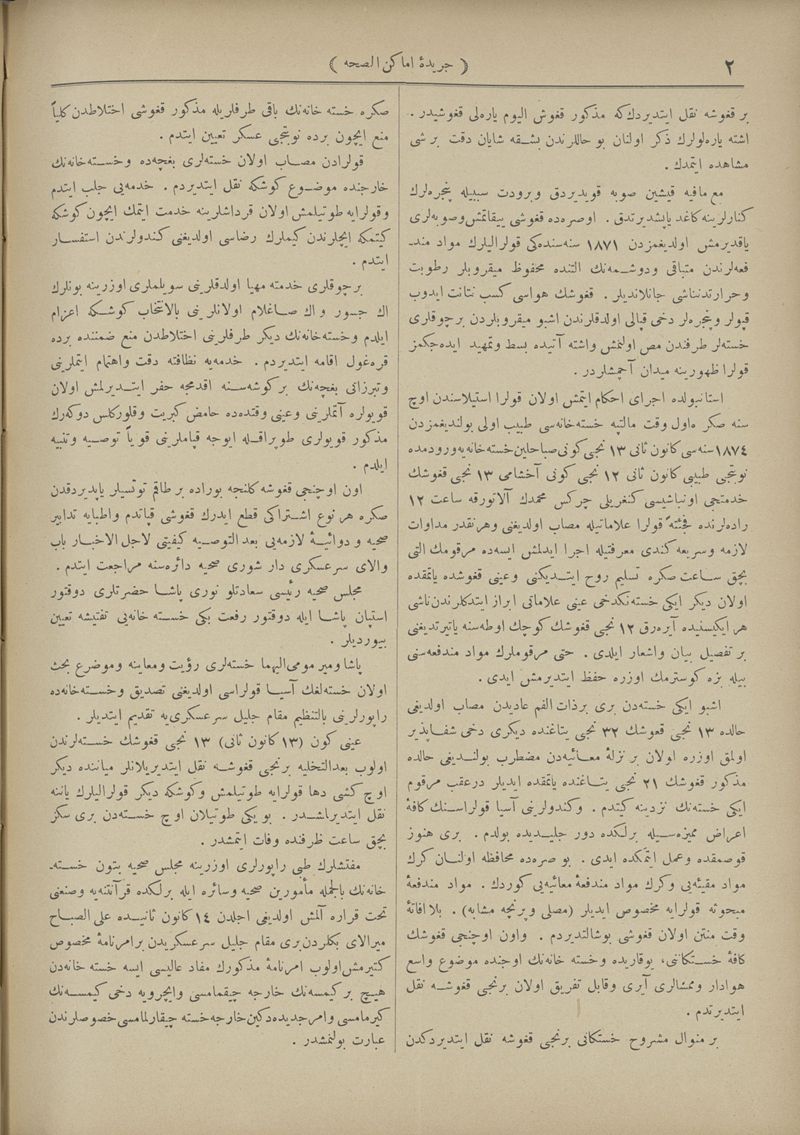 ٢
﴿ جریدۀ اماكن الصحه ﴾
بر قغوشه نقل ایتدیردك كه مذكور قغوش الیوم یاره‌لی قغوشیدر .
اشته یاره‌لولرك ذكر اولنان بو حاللرندن بشقه شایان دقت بر شی
مشاهده ایتمدك .
مع مافیه قیشین صوبه قویدیردق و برودت سببیله پنجره‌لرك
كنارلرینه كاغد یاپشدیرتدق . اوصره‌ده قغوشی ییقاتمش وصوبه‌لری
یاقدیرمش اولدیغمزدن ١٨٧١ سنه‌سنده‌كی قولرالیلرك مواد مند-
فعه‌لرندن متباقی ودوشمه‌نك التنده محفوظ میقروبلر رطوبت
وحرارتدنناشی جانلاندیلر . قغوشك هواسی كسب نتانت ایدوب
قپولر وپنجره‌لر دخی قپالی اولدقلرندن اشبو میقروبلردن برچوقلری
خسته‌لر طرفندن مص اولنمش واشته آتیده بسط وتمهید ایده‌جكمز
قولرا ظهورینه میدان آچمشلردر .
استانبولده اجرای احكام ایتمش اولان قولرا استیلاسندن اوچ
سنه صكره اول وقت مالتپه خسته‌خانه‌سی طبیب اولی بولندیغمزدن
١٨٧٤ سنه‌سی كانون ثانی ١٣ نجی كونی صباحلین خسته‌خانه‌یه ورودمده
نوبتجی طبیبی كانون ثانی ١٢ نجی كونی آخشامی ١٣ نجی قغوشك
خدمتجی اونباشیسی كنغریلی چركس محمدك آلاتورقه ساعت ١٢
راده‌لرنده فجئةً قولرا علاماتیله مصاب اولدیغنی وهرنقدر مداوات
لازمه وسریعه كندی معرفتیله اجرا ایدلمش ایسه‌ده مرقومك التی
بچق ساعت صكره تسلیم روح ایتدیكنی وعینی قغوشده یاتمقده
اولان دیكر ایكی خسته‌نكدخی عینی علاماتی ابراز ایتدكلرندن ناشی
هر ایكیسنیده آیره‌رق ١٢ نجی قغوشك كوچك اوطه‌سنه یاتیرتدیغنی
بر تفصیل بیان واشعار ایلدی . حتی مرقوملرك مواد مندفعه‌سنی
بیله بزه كوسترمك اوزره حفظ ایتدیرمش ایدی .
اشبو ایكی خسته‌دن بری برذات الفم عادیدن مصاب اولدیغی
حالده ١٣ نجی قغوشك ٣٢ نجی یتاغنده دیكری دخی شفاپذیر
اولمق اوزره اولان بر نزلۀ معائیه‌دن مضطرب بولندیغی حالده
مذكور قغوشك ٢١ نجی یتاغنده یاتمقده ایدیلر درعقب مرقوم
ایكی خسته‌نك نزدینه كیتدم . وكندولرینی آسیا قولراسنك كافۀ
اعراض ممیزه‌سیله برلكده دور جلیدیده بولدم . بری هنوز
قوصمقده وعمل ایتمكده ایدی . بو صره‌ده محافظه اولنان كرك
مواد مقیئه‌یی وكرك مواد مندفعۀ معائیه‌یی كوردك . مواد مندفعۀ
مبحوثه قولرایه مخصوص ایدیلر (مصلی وپرنچه مشابه) . بلا افاتۀ
وقت منتن اولان قغوشی بوشالتدیردم . واون اوچنجی قغوشك
كافۀ خستكاننی، یوقاریده وخسته خانه‌نك اوجنده موضوع واسع
هوادار وممشالری آیری وقابل تفریق اولان برنجی قغوشه نقل
ایتدیرتدم .
بر منوال مشروح خستكانی برنجی قغوشه نقل ایتدیردكدن
صكره خسته خانه‌نك باقی طرفلریله مذكور قغوشی اختلاطدن كلیاً
منع ایچون برده نوبتجی عسكر تعیین ایتدم .
قولرادن مصاب اولان خسته‌لری بغچه‌ده وخسته‌خانه‌نك
خارجنده موضوع كوشكه نقل ایتدیردم . خدمه‌یی جلب ایتدم
وقولرایه طوتیلمش اولان قرداشلرینه خدمت ایتمك ایچون كوشكه
كیتمكه ایچلرندن كیملرك رضاسی اولدیغنی كندولرندن استفسار
ایتدم .
برچوقلری خدمته مهیا اولدقلرینی سویلملری اوزرینه بونلرك
اك جسور واك صاغلام اولانلرینی بالانتخاب كوشكه اعزام
ایلدم وخسته‌خانه‌نك دیكر طرفلرینی اختلاطدن منع ضمننده برده
قره‌غول اقامه ایتدیردم . خدمه‌یه نظافته دقت واهتمام ایتملرینی
وتبرزاتی بغچه‌نك بر كوشه‌سنه اقدمجه حفر ایتدیرلمش اولان
قویولره آتملرینی وعینی وقتده‌ده حامض كبریت وقلوركلس دوكه‌رك
مذكور قویولری طوپراقله ایوجه قپاملرینی قویاً توصیه وتنبیه
ایلدم .
اون اوچنجی قغوشه كلنجه بوراده بر طاقم توتسیلر یاپدیردقدن
صكره هر نوع اشتراكی قطع ایدرك قغوشی قپاتدم واطبایه تدابیر
صحیه و دوائیۀ لازمه‌یی بعد التوصیه كیفیتی لاجل الاخبار باب
والای سرعسكری دار شورای صحیه دائره‌سنه مراجعت ایتدم .
مجلس صحیه رئیسی سعادتلو نوری پاشا حضرتلری دوقتور
استپان پاشا ایله دوقتور رفعت بكی خسته خانه‌یی تفتیشه تعیین
بیوردیلر .
پاشا ومیر مومی‌الیهما خسته‌لری رؤیت ومعاینه وموضوع بحث
اولان خسته‌لغك آسیا قولراسی اولدیغنی تصدیق وخسته‌خانه‌ده
راپورلرینی بالتنظیم مقام جلیل سرعسكری‌یه تقدیم ایتدیلر .
عینی كون (١٣ كانون ثانی) ١٣ نجی قغوشك خسته‌لرندن
اولوب بعدالتخلیه برنجی قغوشه نقل ایتدیریلانلر میاننده دیكر
اوچ كشی دها قولرایه طوتیلمش وكوشكه دیكر قولرالیلرك یاننه
نقل ایتدیرلمشدر . بو یكی طوتیلان اوچ خسته‌دن بری سكز
بچق ساعت ظرفنده وفات ایتمشدر .
مفتشلرك طبی راپورلری اوزرینه مجلس صحیه بتون خسته-
خانه‌نك بالجمله مأمورین صحیه وسائره ایله برلكده قرآنتنه‌یه وضعنی
تحت قراره آلمش اولدیغی اجلدن ١٤ كانون ثانیده علی الصباح
میرالای بكلردن بری مقام جلیل سرعسكریدن برامرنامۀ مخصوص
كتیرمش اولوب امرنامۀ مذكورك مفاد عالیسی ایسه خسته خانه‌دن
هیچ بر كیمسه‌نك خارجه چیقمامسی وایچرویه دخی كیمسه‌نك
كیرمامسی وامر جدیده دكین خارجه خسته چیقارلمامسی خصوصلرندن
عبارت بولنمشدر .